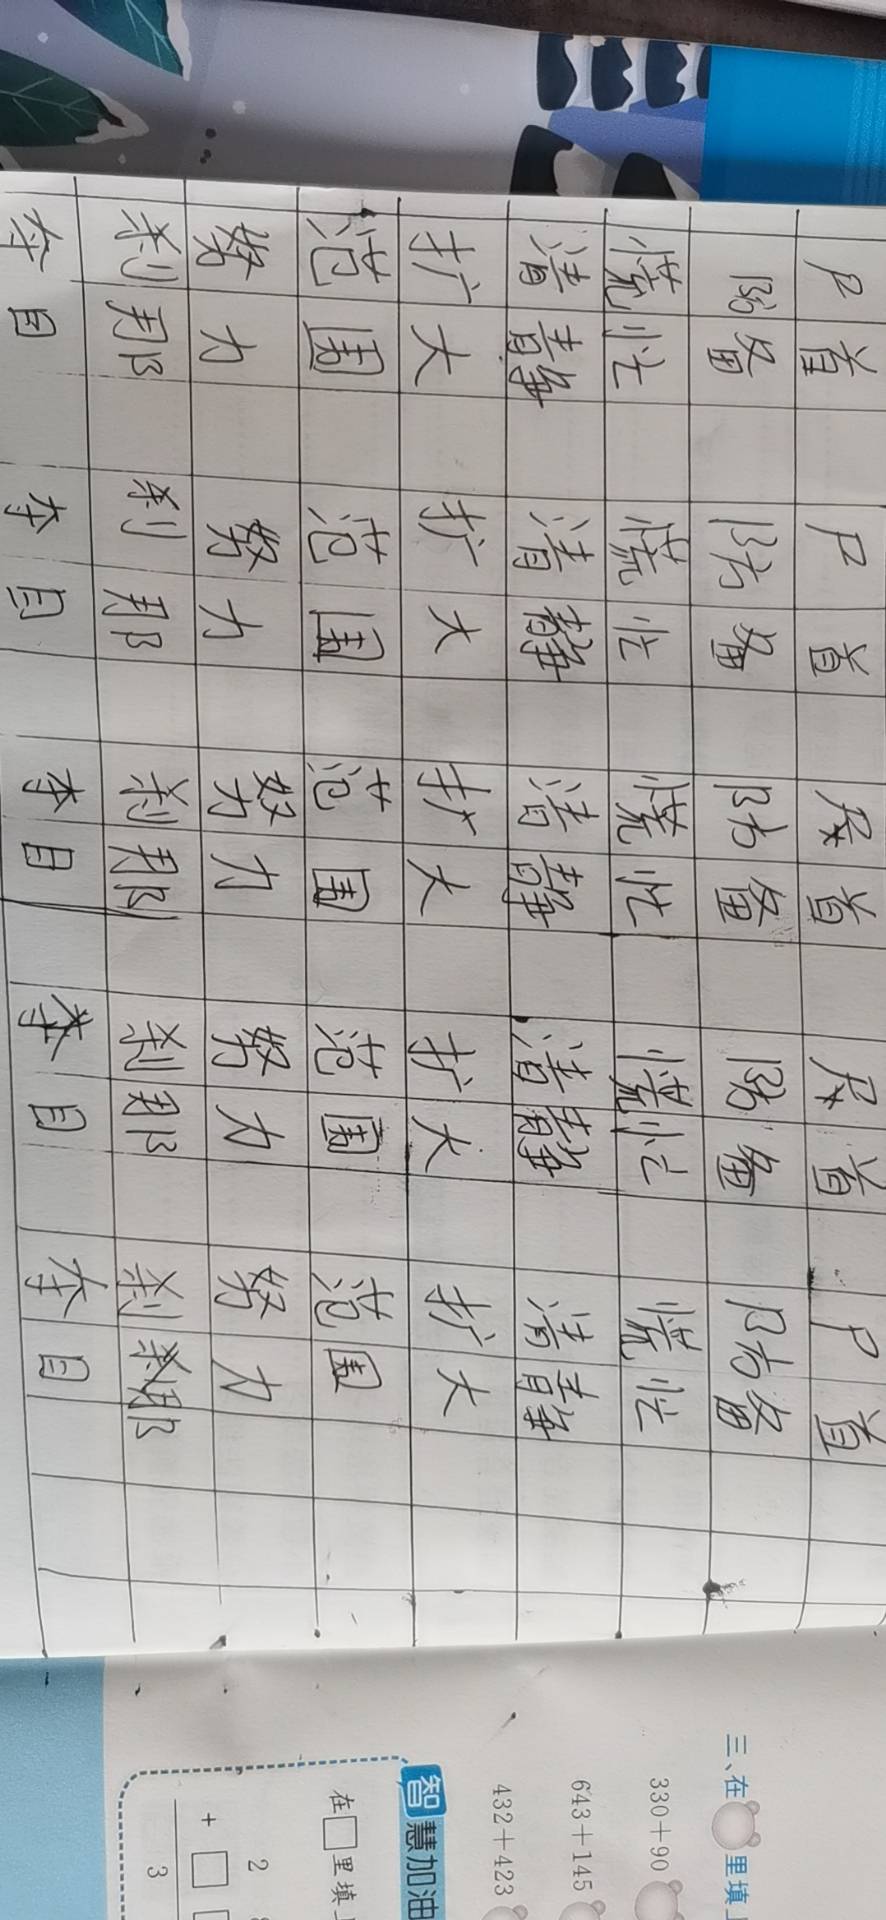 尸首 尸首 尸首 尸首 尸首
防备 防备 防备 防备 防备
慌忙 慌忙 慌忙 慌忙 慌忙
清静 清静 清静 清静 清静
扩大 扩大 扩大 扩大 扩大
范围 范围 范围 范围 范围
努力 努力 努力 努力 努力
刹那 刹那 刹那 刹那 刹那
夺目 夺目 夺目 夺目 夺目
三、在○里填
330+90
643+145
432+423
智慧加油
在□里填
2
+□□
3